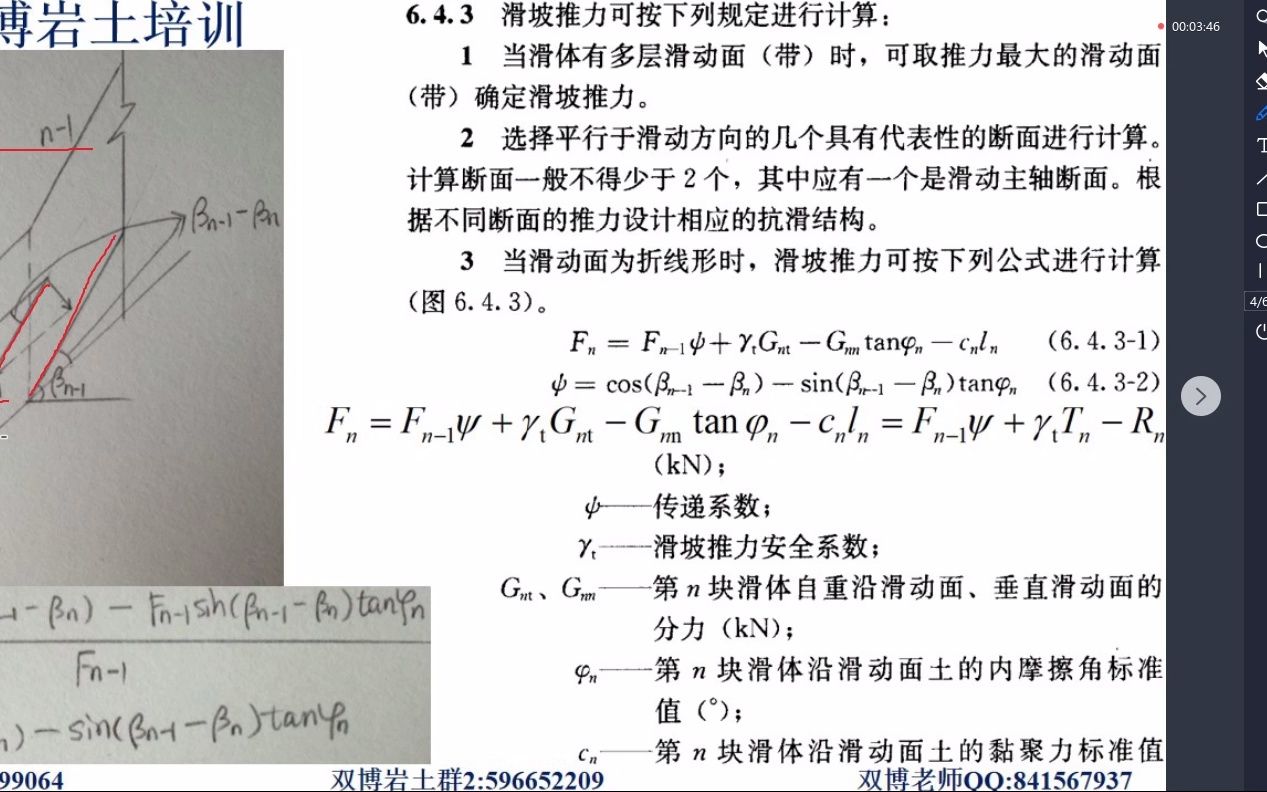 博岩土培训
n-1
βn-1-βn
βn-1
-βn) - Fn-1sin(βn-1-βn)tanφn
Fn-1
) - sin(βn-1-βn)tanφn
6.4.3 滑坡推力可按下列规定进行计算:
1 当滑体有多层滑动面（带）时，可取推力最大的滑动面
（带）确定滑坡推力。
2 选择平行于滑动方向的几个具有代表性的断面进行计算。
计算断面一般不得少于2个，其中应有一个是滑动主轴断面。根
据不同断面的推力设计相应的抗滑结构。
3 当滑动面为折线形时，滑坡推力可按下列公式进行计算
（图6.4.3）。
Fn = Fn-1ψ + γtGnt - Gnn tanφn - cnln (6.4.3-1)
ψ = cos(βn-1 - βn) - sin(βn-1 - βn)tanφn (6.4.3-2)
Fn = Fn-1ψ + γtGnt - Gnn tan φn - cnln = Fn-1ψ + γtTn - Rn
(kN)；
ψ——传递系数；
γt——滑坡推力安全系数；
Gnt、Gnn——第n块滑体自重沿滑动面、垂直滑动面的
分力（kN）；
φn——第n块滑体沿滑动面土的内摩擦角标准
值（°）；
cn——第n块滑体沿滑动面土的黏聚力标准值
99064
双博岩土群2:596652209
双博老师QQ:841567937
00:03:46
4/6